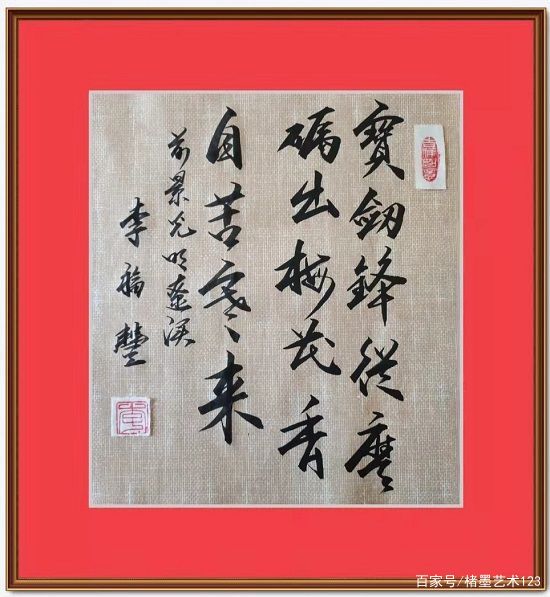 寶劔鋒從磨
礪出梅花香
自苦寒来
前景光明
李福豐
百家号/楮墨艺术123